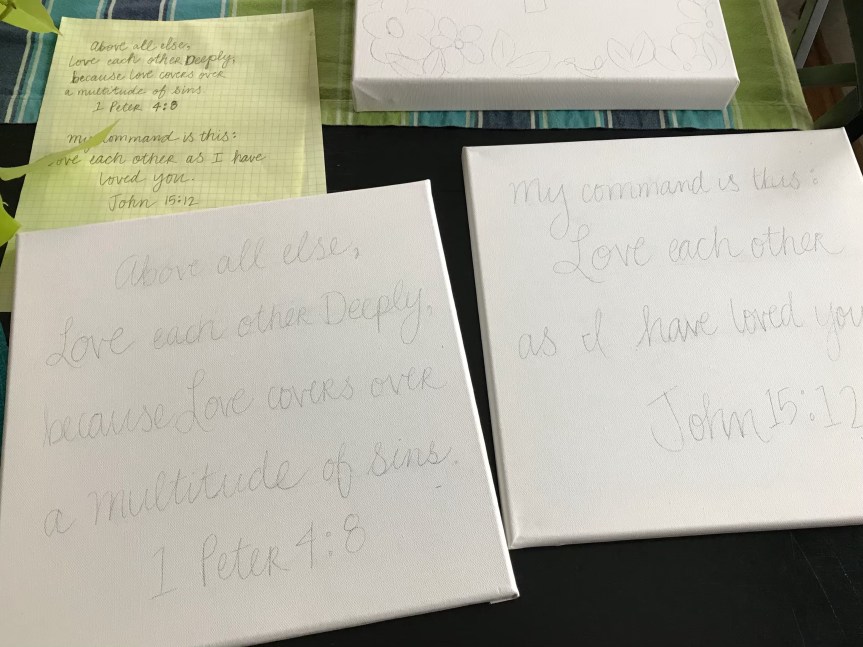 Above all else,
Love each other Deeply,
because love covers over
a multitude of sins
1 Peter 4:8
my command is this:
Love each other as I have
loved you.
John 15:12
Above all else,
Love each other Deeply,
because Love covers over
a multitude of sins.
1 Peter 4:8
My command is this:
Love each other
as I have loved you
John 15:12